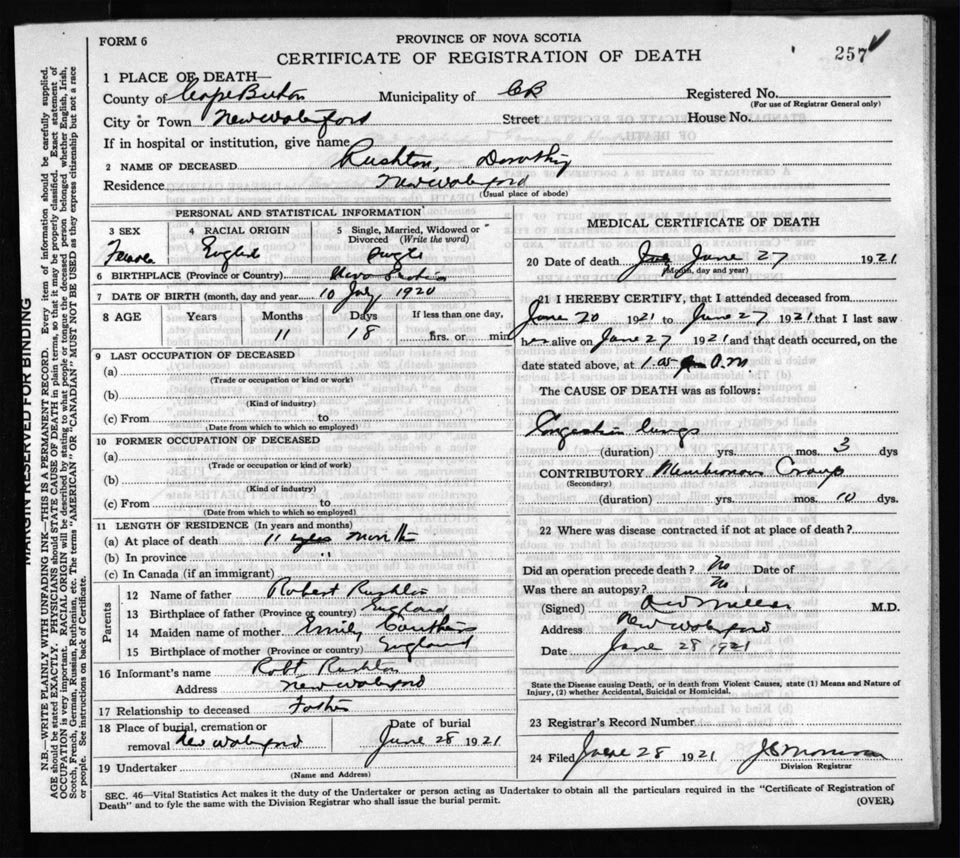 FORM 6
PROVINCE OF NOVA SCOTIA
CERTIFICATE OF REGISTRATION OF DEATH
257
1 PLACE OF DEATH—
County of Cape Breton Municipality of CB Registered No.
(For use of Registrar General only)
City or Town New Waterford Street House No.
If in hospital or institution, give name
2 NAME OF DECEASED Rushton, Dorothy
Residence New Waterford
(Usual place of abode)
PERSONAL AND STATISTICAL INFORMATION
3 SEX 4 RACIAL ORIGIN 5 Single, Married, Widowed or Divorced (Write the word)
Female England Single
6 BIRTHPLACE (Province or Country) Nova Scotia
7 DATE OF BIRTH (month, day and year) 10 July 1920
8 AGE Years Months Days If less than one day,
11 18 hrs. or min
9 LAST OCCUPATION OF DECEASED
(a)
(Trade or occupation or kind or work)
(b)
(Kind of industry)
(c) From to
(Date from which to which so employed)
10 FORMER OCCUPATION OF DECEASED
(a)
(Trade or occupation or kind or work)
(b)
(Kind of industry)
(c) From to
(Date from which to which so employed)
11 LENGTH OF RESIDENCE (In years and months)
(a) At place of death 11 months
(b) In province "
(c) In Canada (if an immigrant)
Parents
12 Name of father Robert Rushton
13 Birthplace of father (Province or country) England
14 Maiden name of mother Emily
15 Birthplace of mother (Province or country) England
16 Informant's name Robt Rushton
Address New Waterford
17 Relationship to deceased Father
18 Place of burial, cremation or removal New Waterford
Date of burial June 28 1921
19 Undertaker
(Name and Address)
MEDICAL CERTIFICATE OF DEATH
20 Date of death June 27 1921
(Month, day and year)
21 I HEREBY CERTIFY, that I attended deceased from
June 20 1921 to June 27 1921 that I last saw
her alive on June 27 1921 and that death occurred, on the
date stated above, at
The CAUSE OF DEATH was as follows:
Congestion lungs
(duration) yrs. mos. 3 dys
CONTRIBUTORY Membranous Croup
(Secondary)
(duration) yrs. mos. 10 dys.
22 Where was disease contracted if not at place of death?
Did an operation precede death? No Date of
Was there an autopsy? No
(Signed) M.D.
Address New Waterford
Date June 28 1921
State the Disease causing Death, or in death from Violent Causes, state (1) Means and Nature of Injury, (2) whether Accidental, Suicidal or Homicidal.
23 Registrar's Record Number
24 Filed June 28 1921
Division Registrar
SEC. 46—Vital Statistics Act makes it the duty of the Undertaker or person acting as Undertaker to obtain all the particulars required in the "Certificate of Registration of
Death" and to fyle the same with the Division Registrar who shall issue the burial permit.
(OVER)
MARGIN RESERVED FOR BINDING
N.B.—WRITE PLAINLY WITH UNFADING INK—THIS IS A PERMANENT RECORD. Every item of information should be carefully supplied.
AGE should be stated EXACTLY. PHYSICIANS should STATE CAUSE OF DEATH in plain terms, so that it may be properly classified. Exact statement of
OCCUPATION is very important. RACIAL ORIGIN will be described by stating to what people or tongue the deceased person belonged whether English, Irish,
Scotch, French, German, Russian, Ruthenian, etc. The terms "AMERICAN" OR "CANADIAN" MUST NOT BE USED as they express citizenship but not a race
or people. See instructions on back of Certificate.